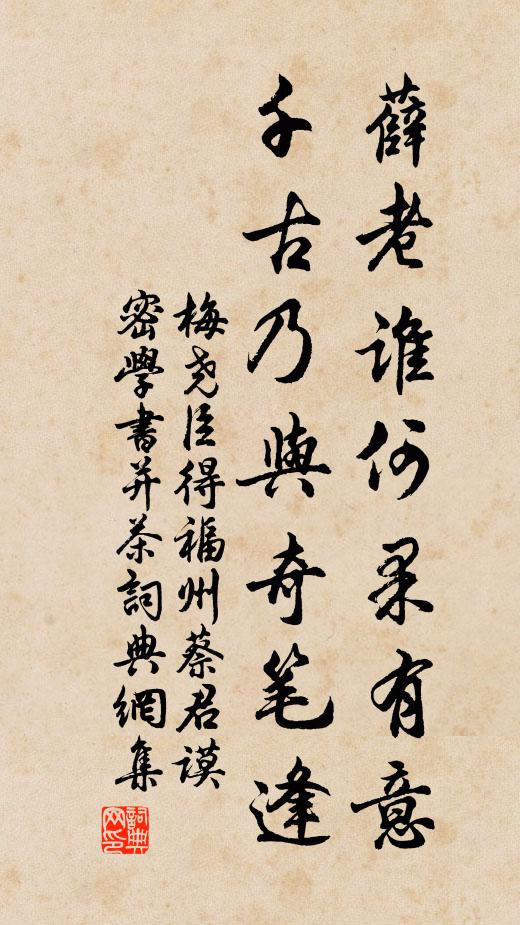 薛老谁何果有意
千古乃與奇笔逢
梅尧臣得福州蔡君谟
密學書并茶詞典網集
詞典
网印